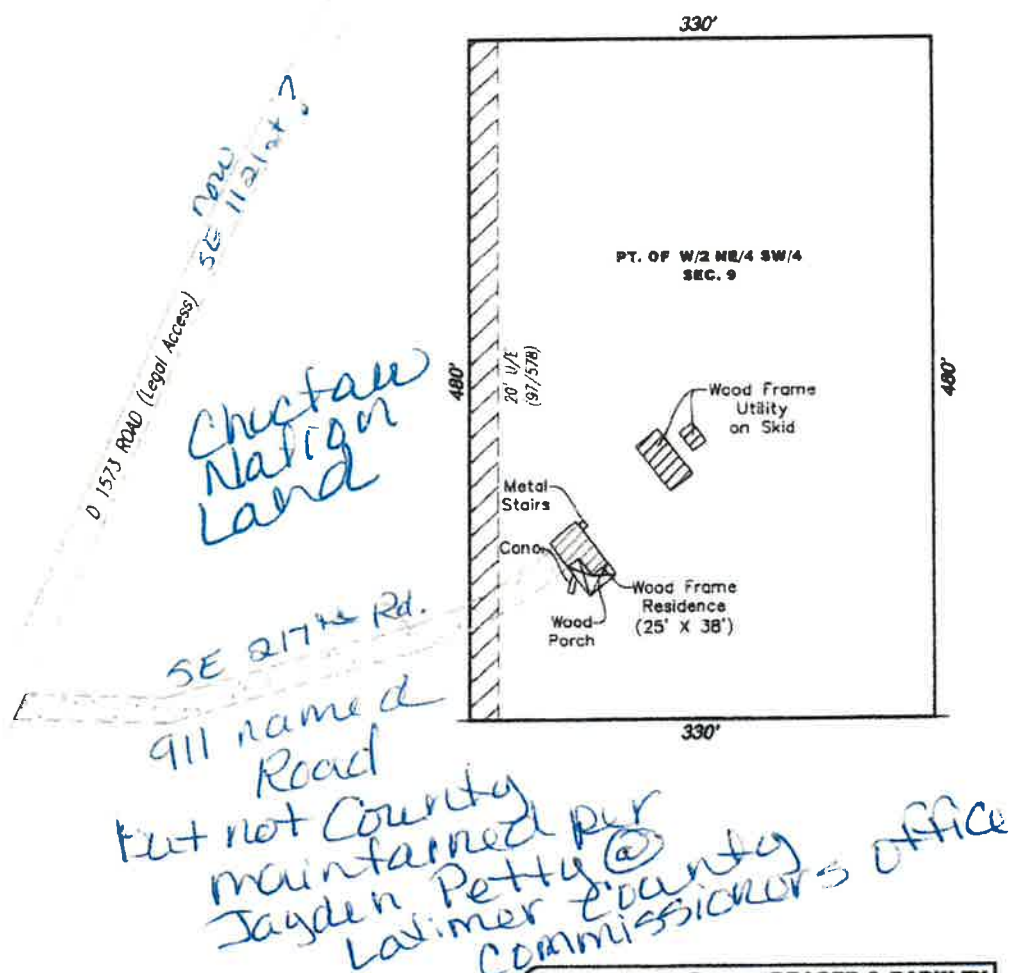 330'
now
SE 1121st ?
D 1573 ROAD (Legal Access)
PT. OF W/2 NE/4 SW/4
SEC. 9
480'
20' U/E
(97/578)
480'
Choctaw
Nation
Land
Wood Frame
Utility
on Skid
Metal
Stairs
Conc
Wood Frame
Residence
(25' X 38')
Wood
Porch
SE 217th Rd.
911 named
Road
330'
but not County
maintained per
Jayden Petty @
Latimer County
Commissioners office